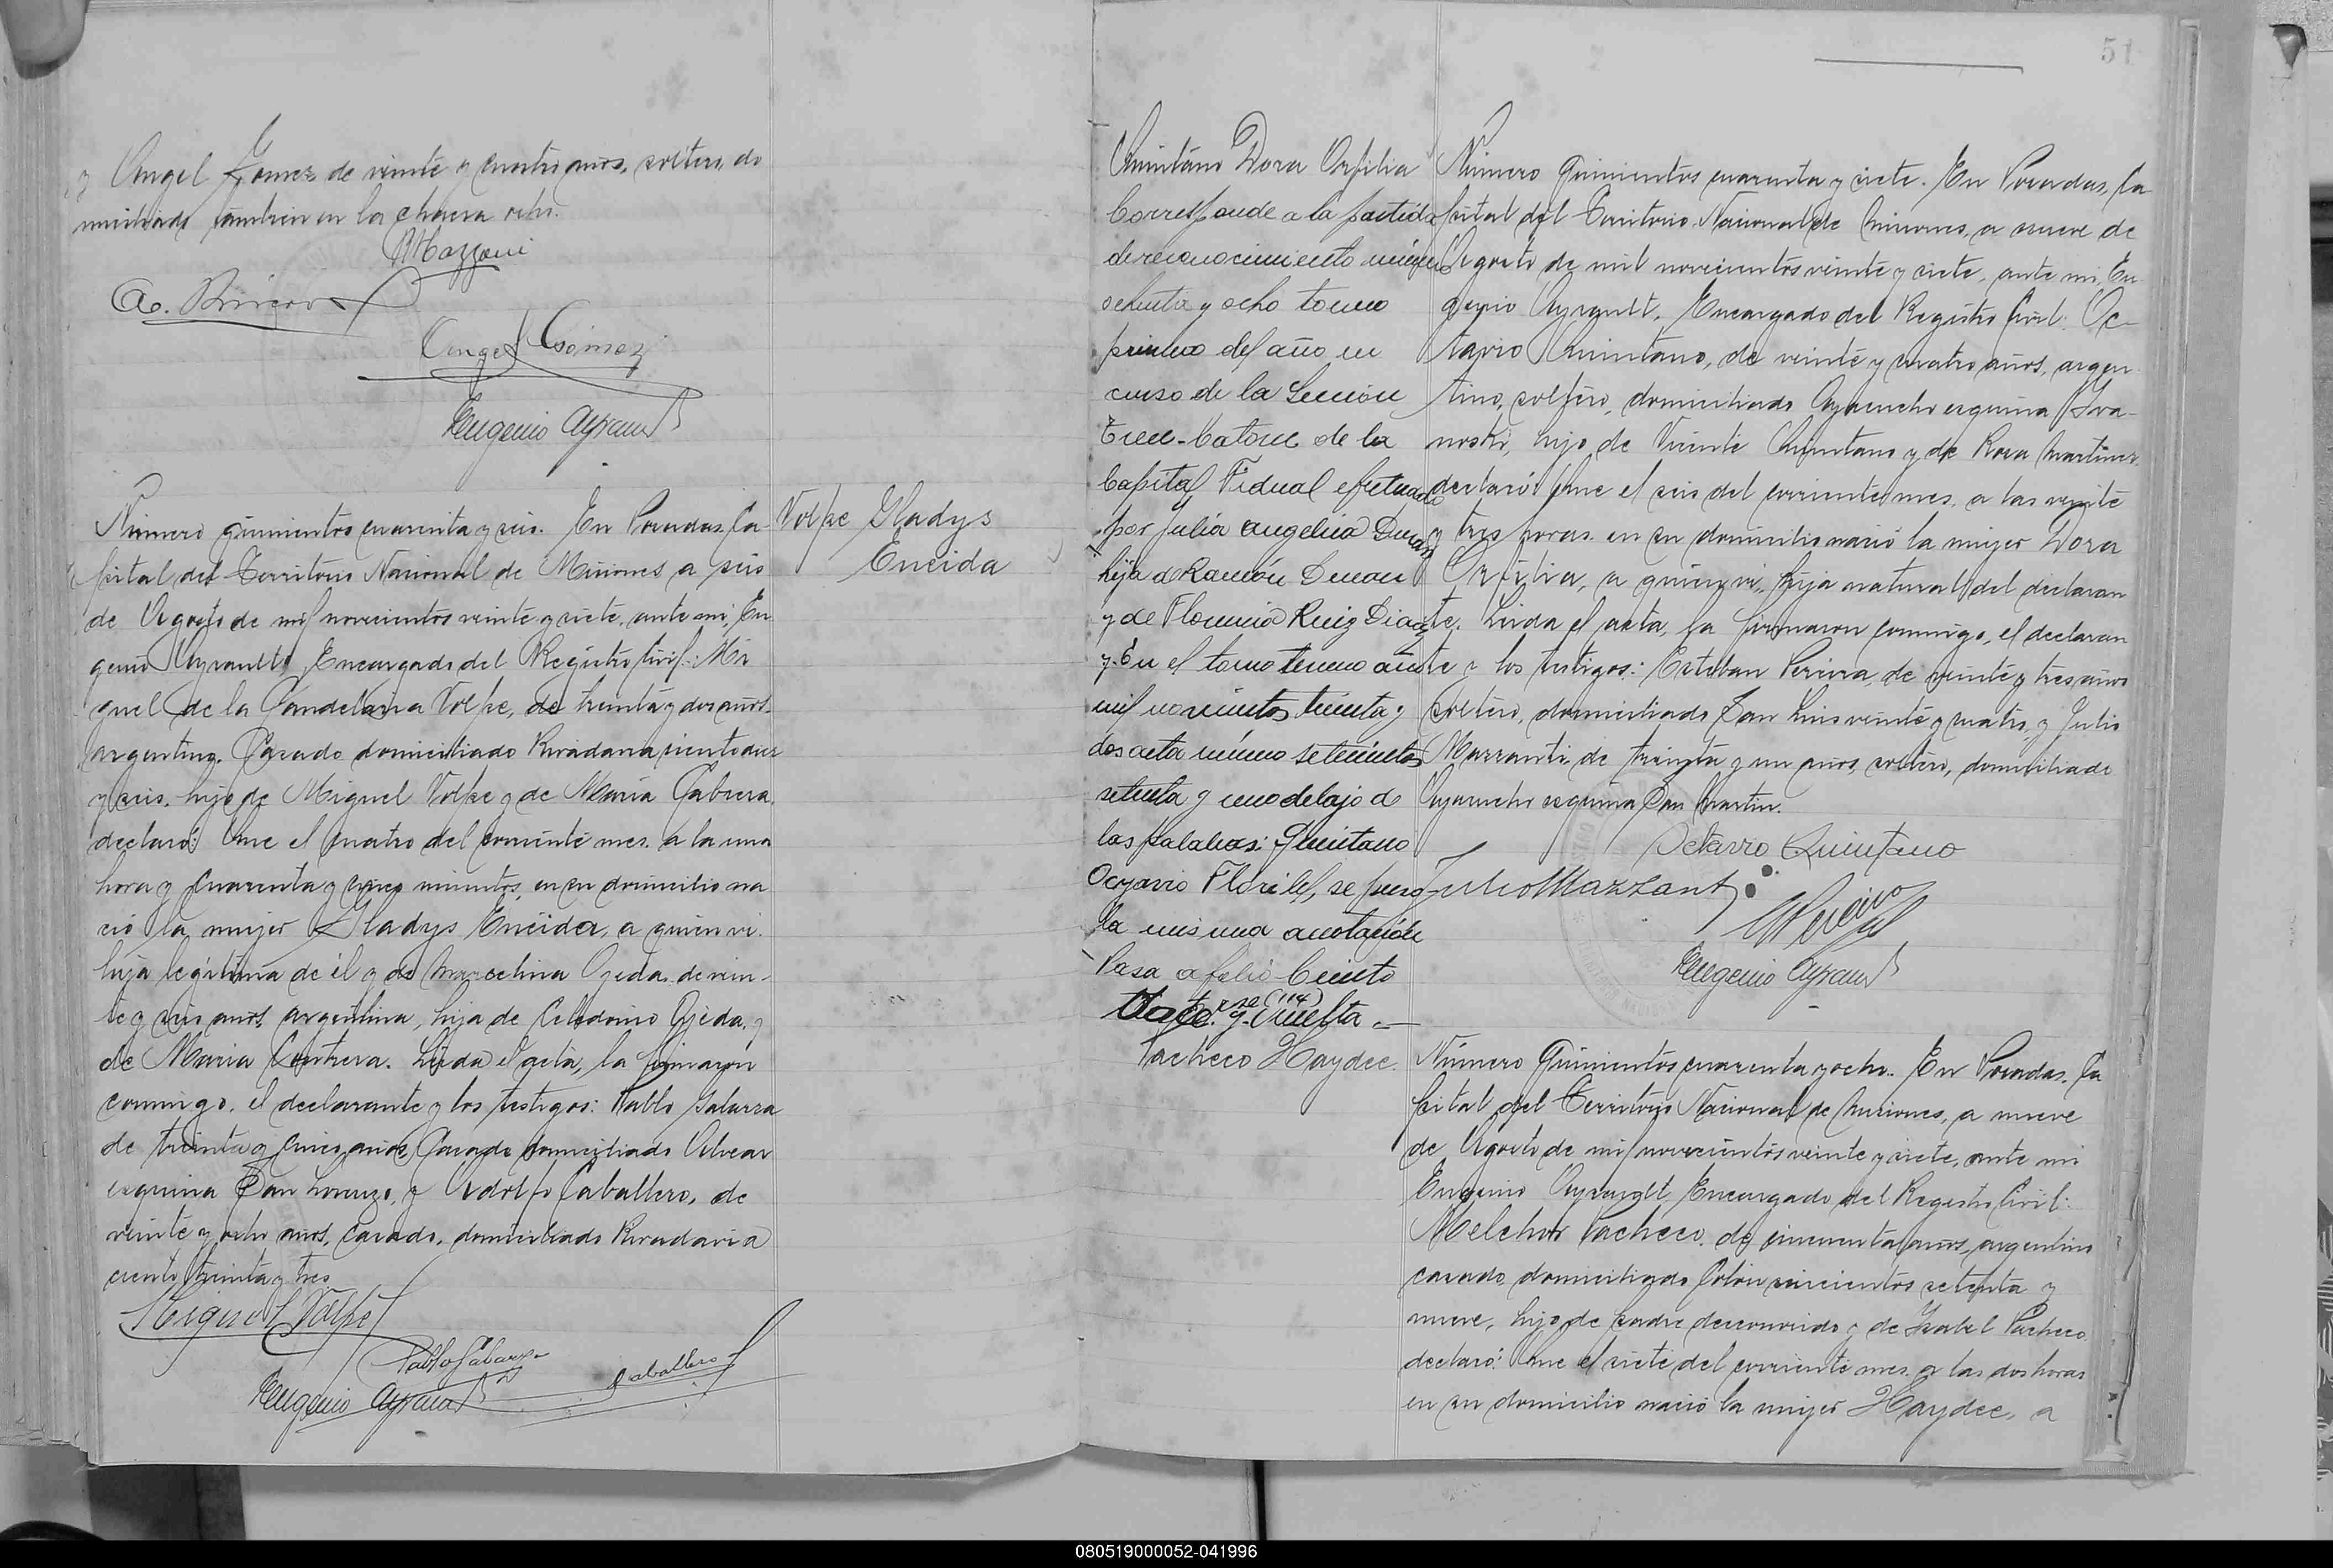 y Angel Gomez de veinte y cuatro años, soltero, do
miciliado tambien en la chacra ocho.
Mazzoni
Angel Gomez
Eugenio Ayrault
Número quinientos cuarenta y seis. En Posadas, Ca-
pital del Territorio Nacional de Misiones a seis
de Agosto de mil novecientos veinte y siete, ante mi, Eu
genio Ayrault, Encargado del Registro Civil: Mi
guel de la Candelaria Volpe, de treinta y dos años
argentino, Casado domiciliado Rivadavia ciento diez
y seis, hijo de Miguel Volpe y de María Cabrera,
declaró: Que el cuatro del corriente mes, a la una
hora y cuarenta y cinco minutos, en su domicilio na
ció la mujer Gladys Eneida, a quien vi.
hija legítima de él y de Marcelina Ojeda, de vein-
te y seis años, argentina, hija de Celedonio Ojeda, y
de María Contrera. Leída el acta, la firmaron
conmigo, el declarante y los testigos: Pablo Galarza
de treinta y cinco años, Casado domiciliado Alvear
esquina San Lorenzo, y Adolfo Caballero, de
veinte y ocho años, Casado, domiciliado Rivadavia
ciento treinta y tres
Miguel Volpe
Pablo Galarza
Caballero
Eugenio Ayrault
Volpe Gladys
Eneida
51
Quintano Dora Orfilia
Corresponde a la partida
de reconocimiento número
ochenta y ocho tomo
primero del año en
curso de la Sección
Trece-Catorce de la
Capital Federal efectuado
por Julia Angelica Duran
hija d Ramón Duran
y de Florencia Ruiz Diaz
y. En el tomo tercero año
mil novecientos treinta y
dos acta número setecientos
setenta y uno debajo d
las palabras: Quintano
Octavio Floribel, se puso
la misma anotación
Pasa a folio Ciento
Catorce (114)
y vuelta.—
Número Quinientos cuarenta y siete. En Posadas, Ca
pital del Territorio Nacional de Misiones, a nueve de
Agosto de mil novecientos veinte y siete, ante mi, Eu-
genio Ayrault, Encargado del Registro Civil: Oc-
tavio Quintano, de veinte y cuatro años, argen
tino, soltero, domiciliado Ayacucho esquina
hijo de Vicente Quintano y de Rosa Martinez
declaró: Que el seis del corriente mes, a las veinte
y tres horas en su domicilio nació la mujer Dora
Orfilia, a quien vi, hija natural del declaran
te. Leída el acta, la firmaron conmigo, el declaran
te y los testigos: Esteban Pereira, de veinte y tres años
soltero, domiciliado San Luis veinte y cuatro, y Julio
Mazzanti, de treinta y un años, soltero, domiciliado
Ayacucho esquina San Martin.
Octavio Quintano
Julio Mazzanti
E Pereira
Eugenio Ayrault
Pacheco Haydee.
Número Quinientos cuarenta y ocho. En Posadas, Ca
pital del Territorio Nacional de Misiones, a nueve
de Agosto de mil novecientos veinte y siete, ante mi
Eugenio Ayrault, Encargado del Registro Civil:
Melchor Pacheco, de cincuenta años, argentino
casado domiciliado Colón seiscientos setenta y
nueve, hijo de padre desconocido y de Isabel Pacheco
declaró: Que el siete del corriente mes, a las dos horas
en su domicilio nació la mujer Haydee, a
080519000052-041996